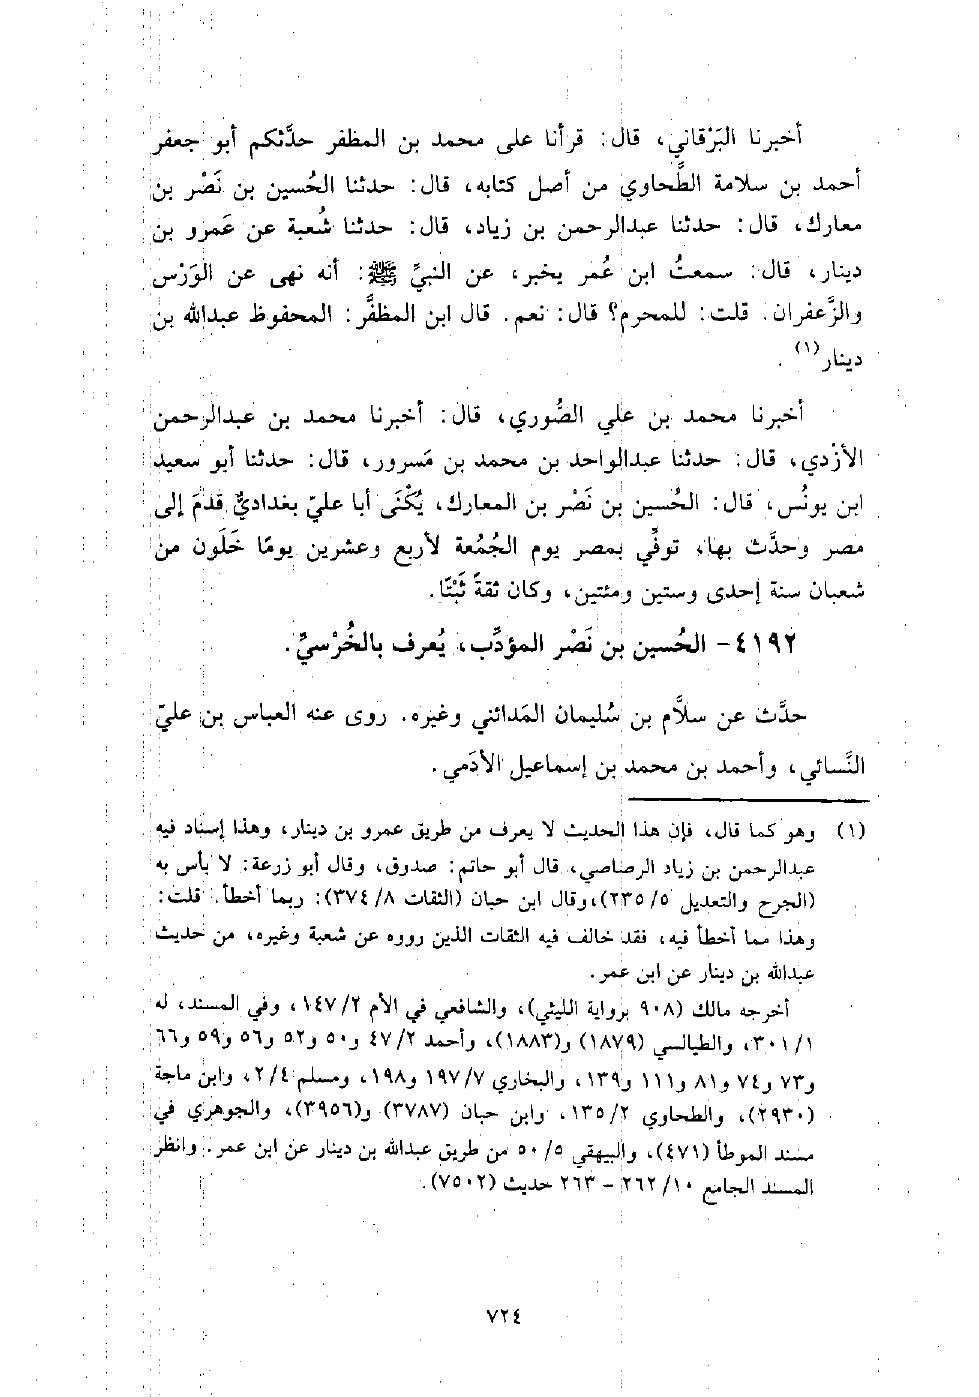 أخبرنا البَرْقاني، قال: قرأنا على محمد بن المظفر حدَّثكم أبو جعفر
أحمد بن سلامة الطَّحاوي من أصل كتابه، قال: حدثنا الحُسين بن نَصْر بن
معارك، قال: حدثنا عبدالرحمن بن زياد، قال: حدثنا شُعبة عن عَمرو بن
دينار، قال: سمعتُ ابن عُمر يخبر، عن النبيِّ ﷺ: أنه نهى عن الوَرْس
والزَّعفران. قلت: للمحرم؟ قال: نعم. قال ابن المظفَّر: المحفوظ عبدالله بن
دينار(١).
أخبرنا محمد بن علي الصُّوري، قال: أخبرنا محمد بن عبدالرحمن
الأزْدي، قال: حدثنا عبدالواحد بن محمد بن مَسرور، قال: حدثنا أبو سعيد
ابن يونُس، قال: الحُسين بن نَصْر بن المعارك، يُكْنَى أبا عليّ بغداديٌّ قدمَ إلى
مصر وحدَّث بها، توفِّي بمصر يوم الجُمُعة لأربع وعشرين يومًا خَلَون من
شعبان سنة إحدى وستين ومئتين، وكان ثقةً ثَبْتًا.
٤١٩٢- الحُسين بن نَصْر المؤدِّب، يُعرف بالخُرْسيِّ.
حدَّث عن سلاَّم بن سُليمان المَدائني وغيره. روى عنه العباس بن عليّ
النَّسائي، وأحمد بن محمد بن إسماعيل الأدَمي.
(١) وهو كما قال، فإن هذا الحديث لا يعرف من طريق عمرو بن دينار، وهذا إسناد فيه
عبدالرحمن بن زياد الرصاصي، قال أبو حاتم: صدوق، وقال أبو زرعة: لا بأس به
(الجرح والتعديل ٥/ ٢٣٥)،وقال ابن حبان (الثقات ٨/ ٣٧٤): ربما أخطأ. قلت:
وهذا مما أخطأ فيه، فقد خالف فيه الثقات الذين رووه عن شعبة وغيره، من حديث
عبدالله بن دينار عن ابن عمر.
أخرجه مالك (٩٠٨ برواية الليثي)، والشافعي في الأم ٢/ ١٤٧، وفي المسند، له
١/ ٣٠١، والطيالسي (١٨٧٩) و(١٨٨٣)، وأحمد ٢/ ٤٧ و٥٠ و٥٢ و٥٦ و٥٩ و٦٦
و٧٣ و٧٤ و٨١ و١١١ و١٣٩، والبخاري ٧/ ١٩٧ و١٩٨، ومسلم ٤/ ٢، وابن ماجة
(٢٩٣٠)، والطحاوي ٢/ ١٣٥، وابن حبان (٣٧٨٧) و(٣٩٥٦)، والجوهري في
مسند الموطأ (٤٧١)، والبيهقي ٥/ ٥٠ من طريق عبدالله بن دينار عن ابن عمر. وانظر
المسند الجامع ١٠/ ٢٦٢ - ٢٦٣ حديث (٧٥٠٢).
٧٢٤